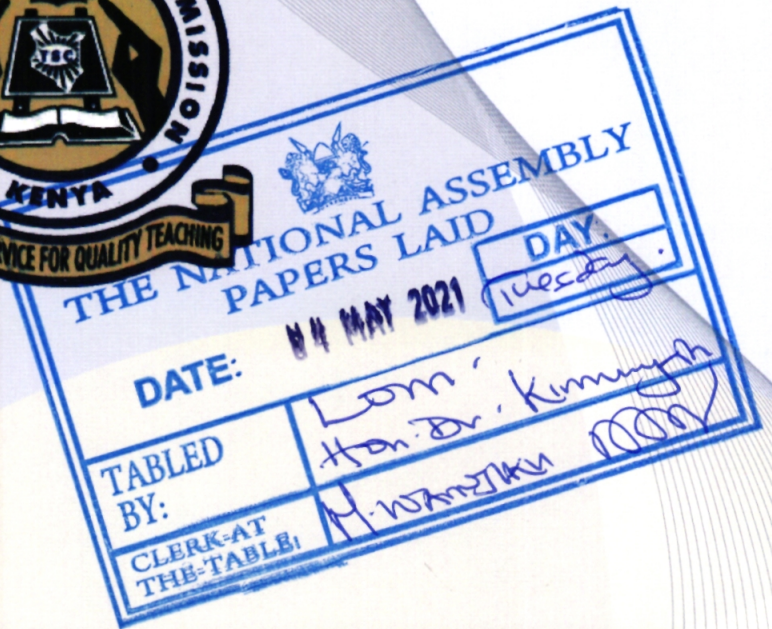 TSC
MISSION
KENYA
VICE FOR QUALITY TEACHING
THE NATIONAL ASSEMBLY
PAPERS LAID
DAY.
Tuesday.
DATE:
04 MAY 2021
TABLED
BY:
LOM
Hon. Dr. Kimunya
CLERK-AT
THE-TABLE: